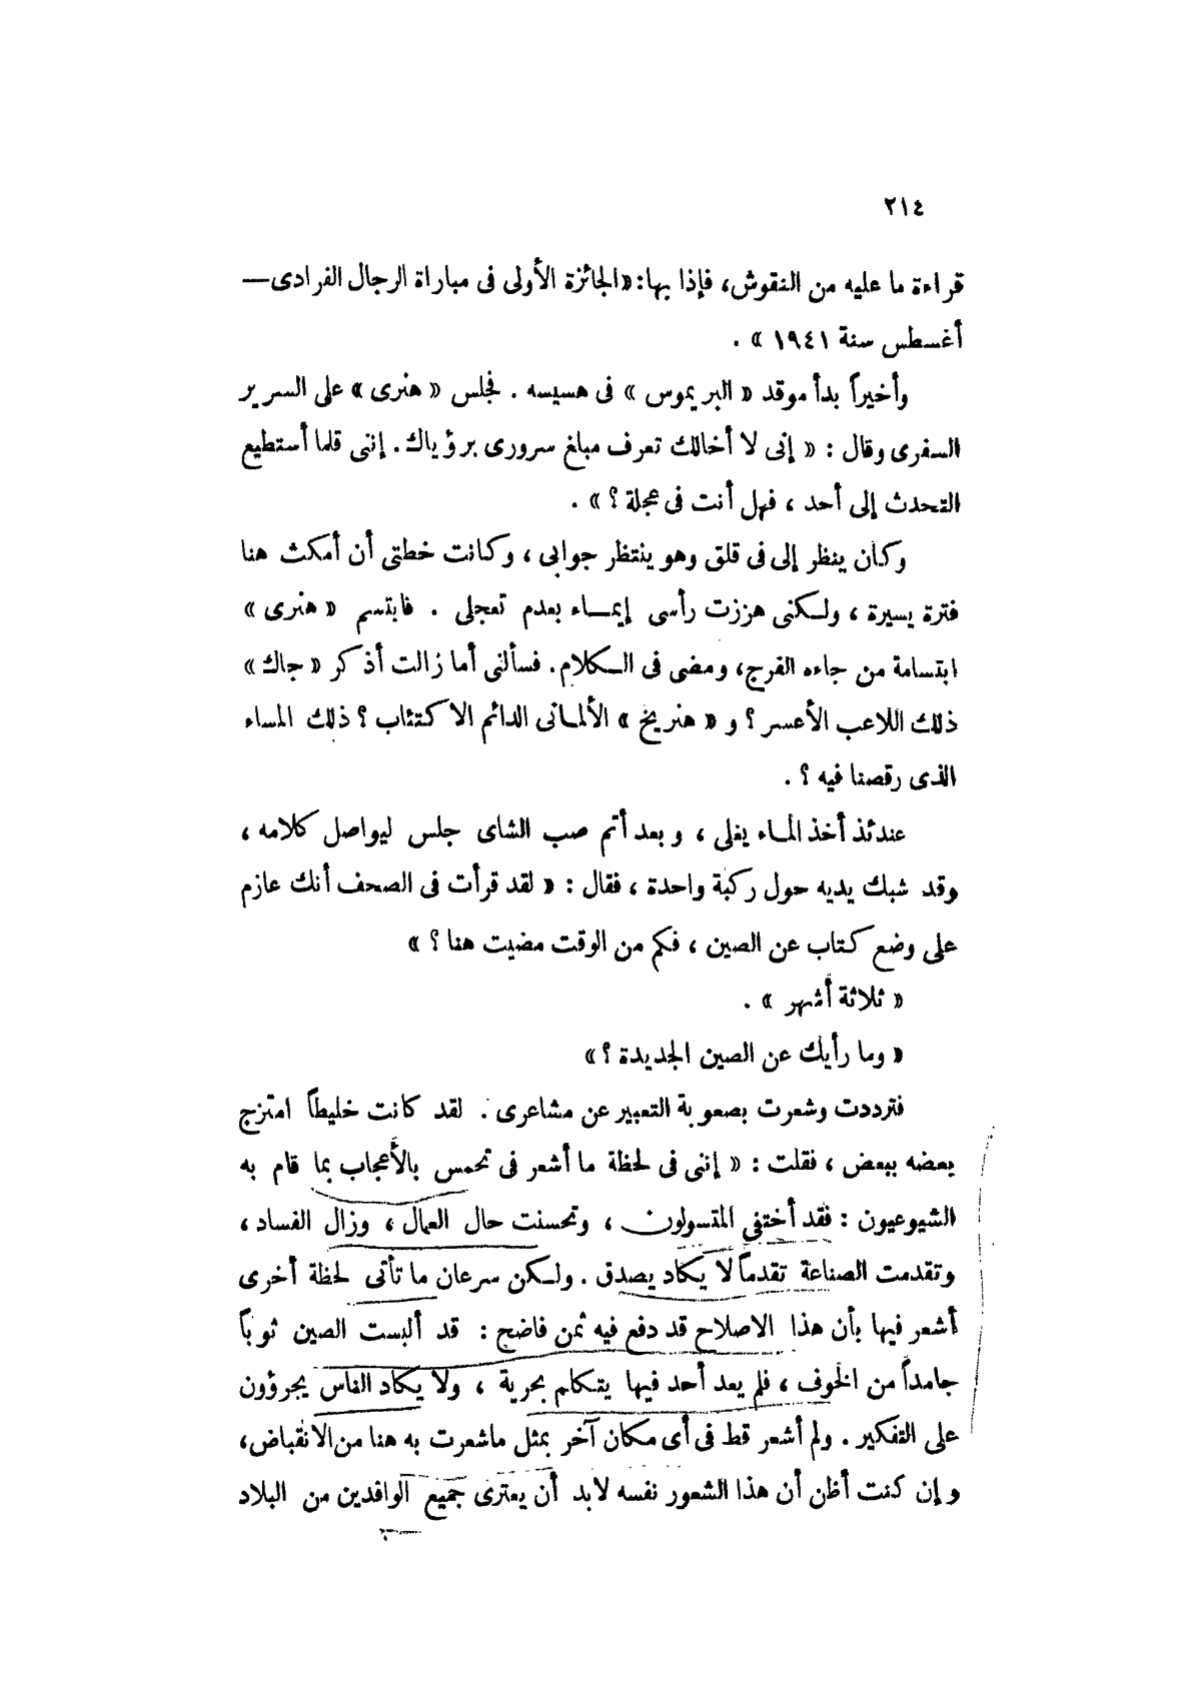 ٢١٤
قراءة ما عليه من النقوش، فإذا بها: «الجائزة الأولى فى مباراة الرجال الفرادى —
أغسطس سنة ١٩٤١ » .
وأخيراً بدأ موقد « البريموس » فى هسيسه . فجلس « هنرى » على السرير
السفرى وقال : « إنى لا أخالك تعرف مبلغ سرورى برؤياك. إننى قلما أستطيع
التحدث إلى أحد ، فهل أنت فى عجلة ؟ » .
وكان ينظر إلى فى قلق وهو ينتظر جوابى ، وكانت خطتى أن أمكث هنا
فترة يسيرة ، ولكنى هززت رأسى إيماء بعدم تعجلى . فابتسم « هنرى »
ابتسامة من جاءه الفرج، ومضى فى الكلام. فسألنى أما زالت أذكر « جاك »
ذلك اللاعب الأعسر ؟ و « هنريخ » الألمانى الدائم الاكتئاب ؟ ذلك المساء
الذى رقصنا فيه ؟ .
عندئذ أخذ الماء يغلى ، وبعد أتم صب الشاى جلس ليواصل كلامه ،
وقد شبك يديه حول ركبة واحدة ، فقال : « لقد قرأت فى الصحف أنك عازم
على وضع كتاب عن الصين ، فكم من الوقت مضيت هنا ؟ »
« ثلاثة أشهر » .
« وما رأيك عن الصين الجديدة ؟ »
فترددت وشعرت بصعوبة التعبير عن مشاعرى . لقد كانت خليطاً امتزج
بعضه ببعض ، فقلت : « إننى فى لحظة ما أشعر فى تحمس بالأعجاب بما قام به
الشيوعيون : فقد أختفى المتسولون ، وتحسنت حال العمال ، وزال الفساد ،
وتقدمت الصناعة تقدماً لا يكاد يصدق . ولكن سرعان ما تأتى لحظة أخرى
أشعر فيها بأن هذا الاصلاح قد دفع فيه ثمن فاضح : قد ألبست الصين ثوباً
جامداً من الخوف ، فلم يعد أحد فيها يتكلم بحرية ، ولا يكاد الناس يجرؤون
على التفكير . ولم أشعر قط فى أى مكان آخر بمثل ماشعرت به هنا من الانقباض،
وإن كنت أظن أن هذا الشعور نفسه لابد أن يعترى جميع الوافدين من البلاد